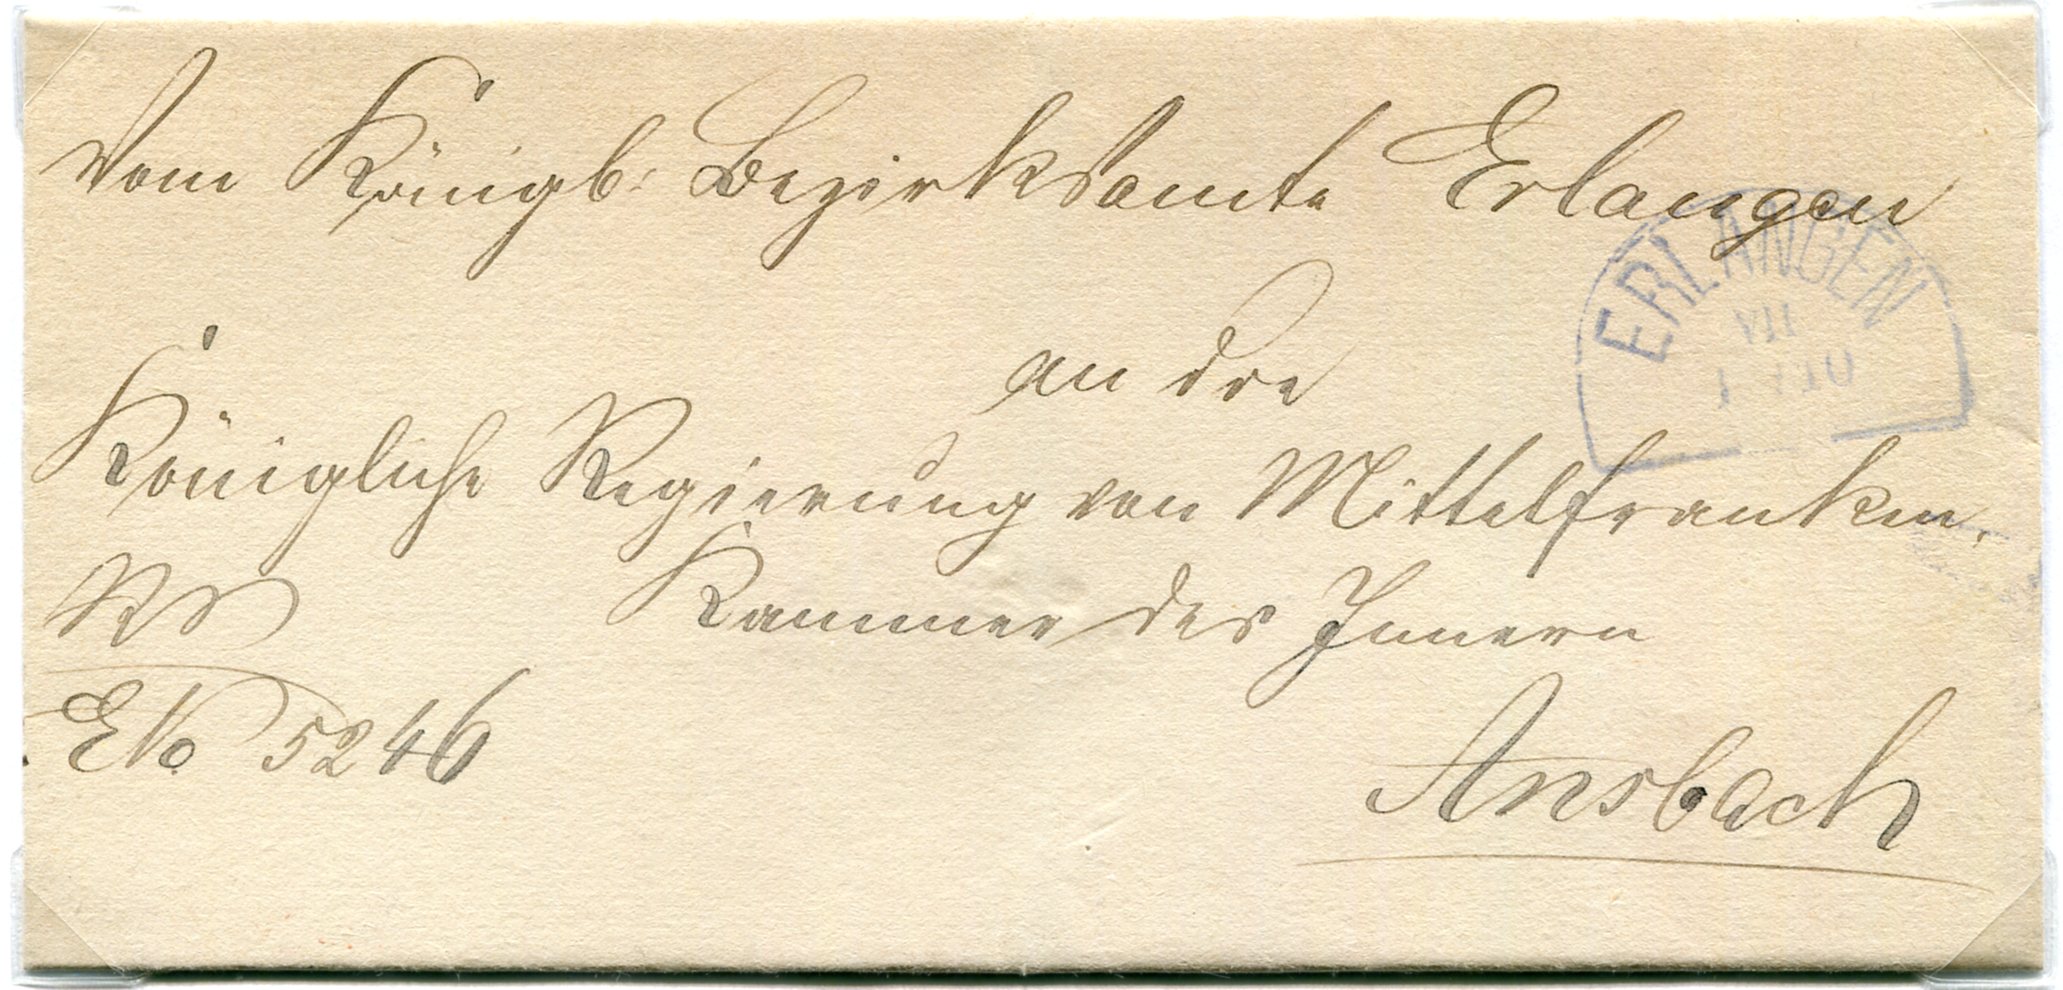 Vom Königl: Bezirksamte Erlangen
ERLANGEN
VII
an die
Königliche Regierung von Mittelfranken,
Kammer des Innern
RS
ENo 5246
Ansbach